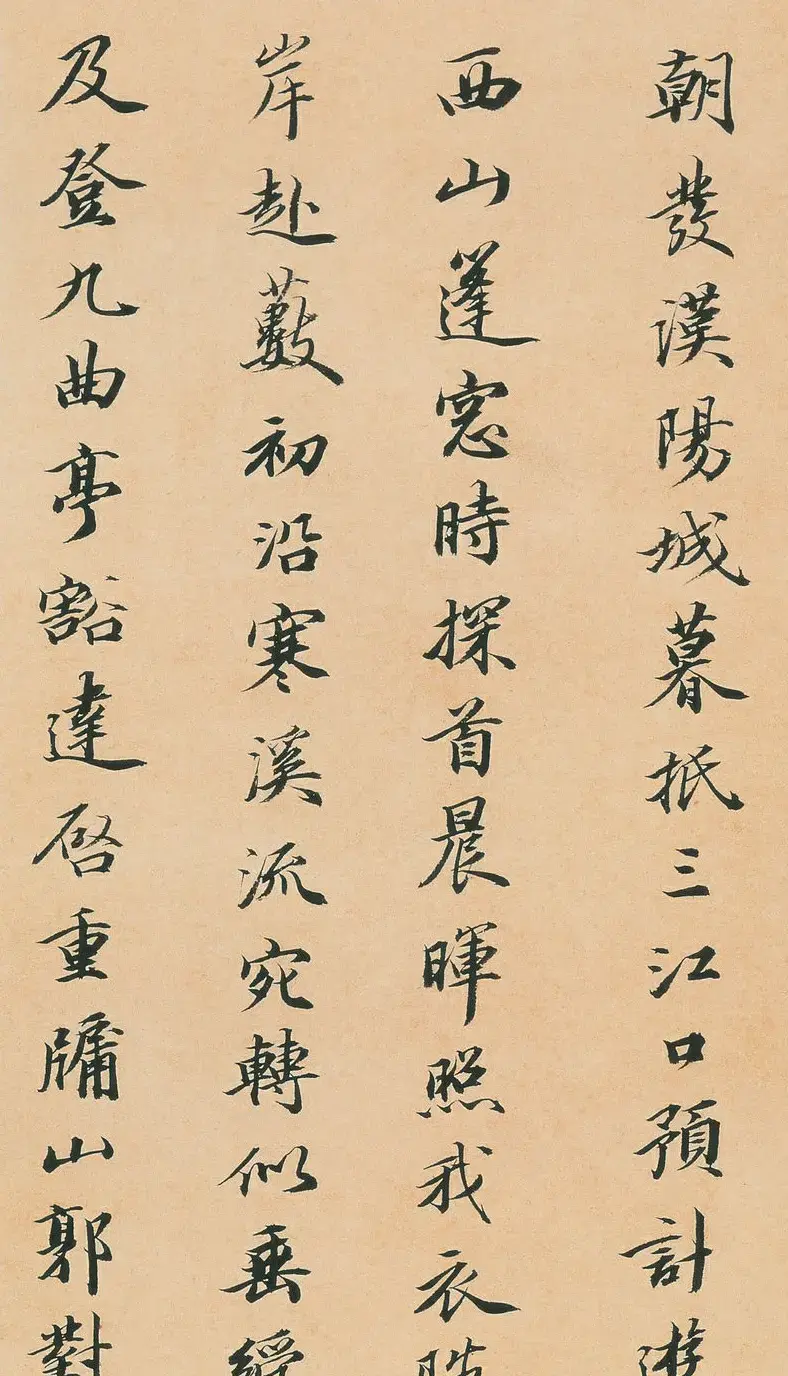 朝發漢陽城暮抵三江口預計游
西山蓬窓時探首晨暉照我衣皓
岸赴藪初沿寒溪流宛轉似垂綬
及登九曲亭豁達啓重牖山郭對